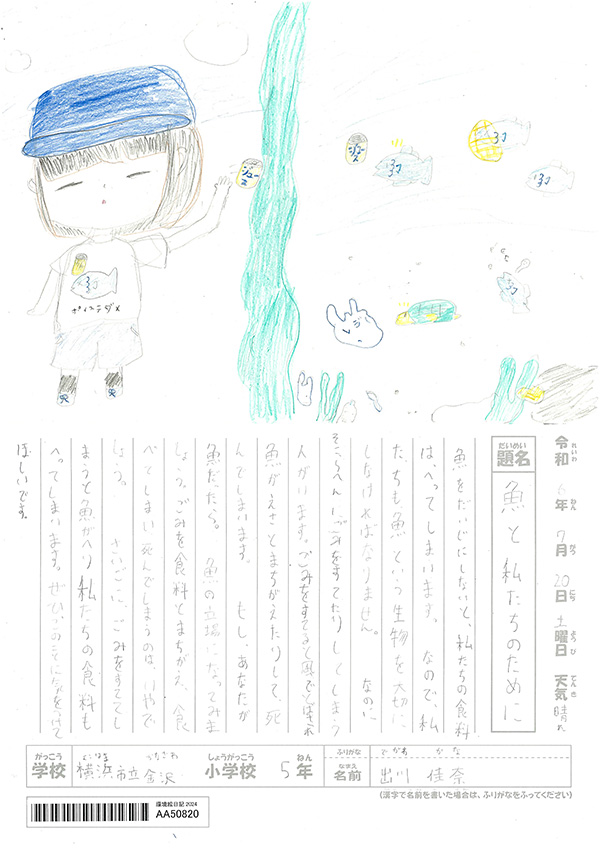 ジュース
ジュース
ポイステダメ
令和6年7月20日土曜日 天気 晴れ
れいわ ねん がつ にち ようび てんき
だいめい
題名
魚と私たちのために
魚をだいじにしないと、私たちの食料
は、へってしまいます。なので、私
たちも魚という生物を大切に
しなければなりません。 なのに
そこらへんにごみをすてたりしてしまう
人がいます。ごみをすてると風でとばされ
魚がえさとまちがえたりして、死
んでしまいます。 もし、あなたが
魚だったら。 魚の立場になってみま
しょう。ごみを食料とまちがえ、食
べてしまい死んでしまうのは、いやで
しょう。 さいごに、ごみをすててし
まうと魚がへり私たちの食料も
へってしまいます。ぜひこのことに気をつけて
ほしいです。
がっこう しょうがっこう ねん
学校 横浜市立金沢 小学校 5年
ふりがな でがわ かな
なまえ
名前 出川 佳奈
(漢字で名前を書いた場合は、ふりがなをふってください)
環境絵日記2024
AA50820